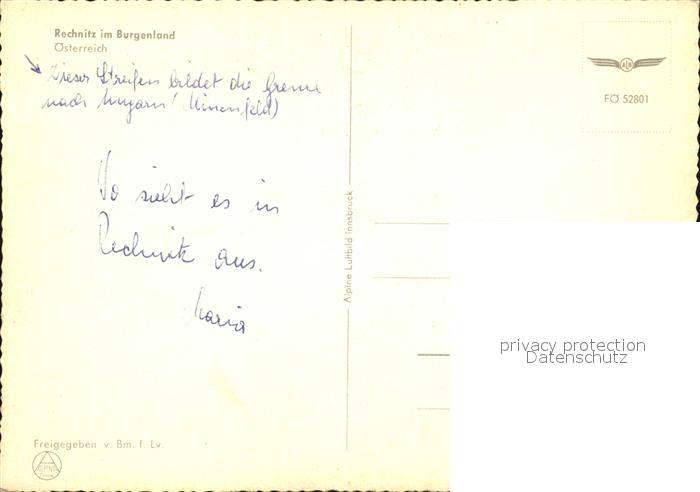 Rechnitz im Burgenland
Österreich
Dieser Streifen bildet die Grenze
nach Ungarn (Minenfeld)
So sieht es in
Rechnitz aus.
Maria
Alpine Luftbild Innsbruck
FÖ 52801
privacy protection
Datenschutz
Freigegeben v. Bm. f. Lv.
ALPINE